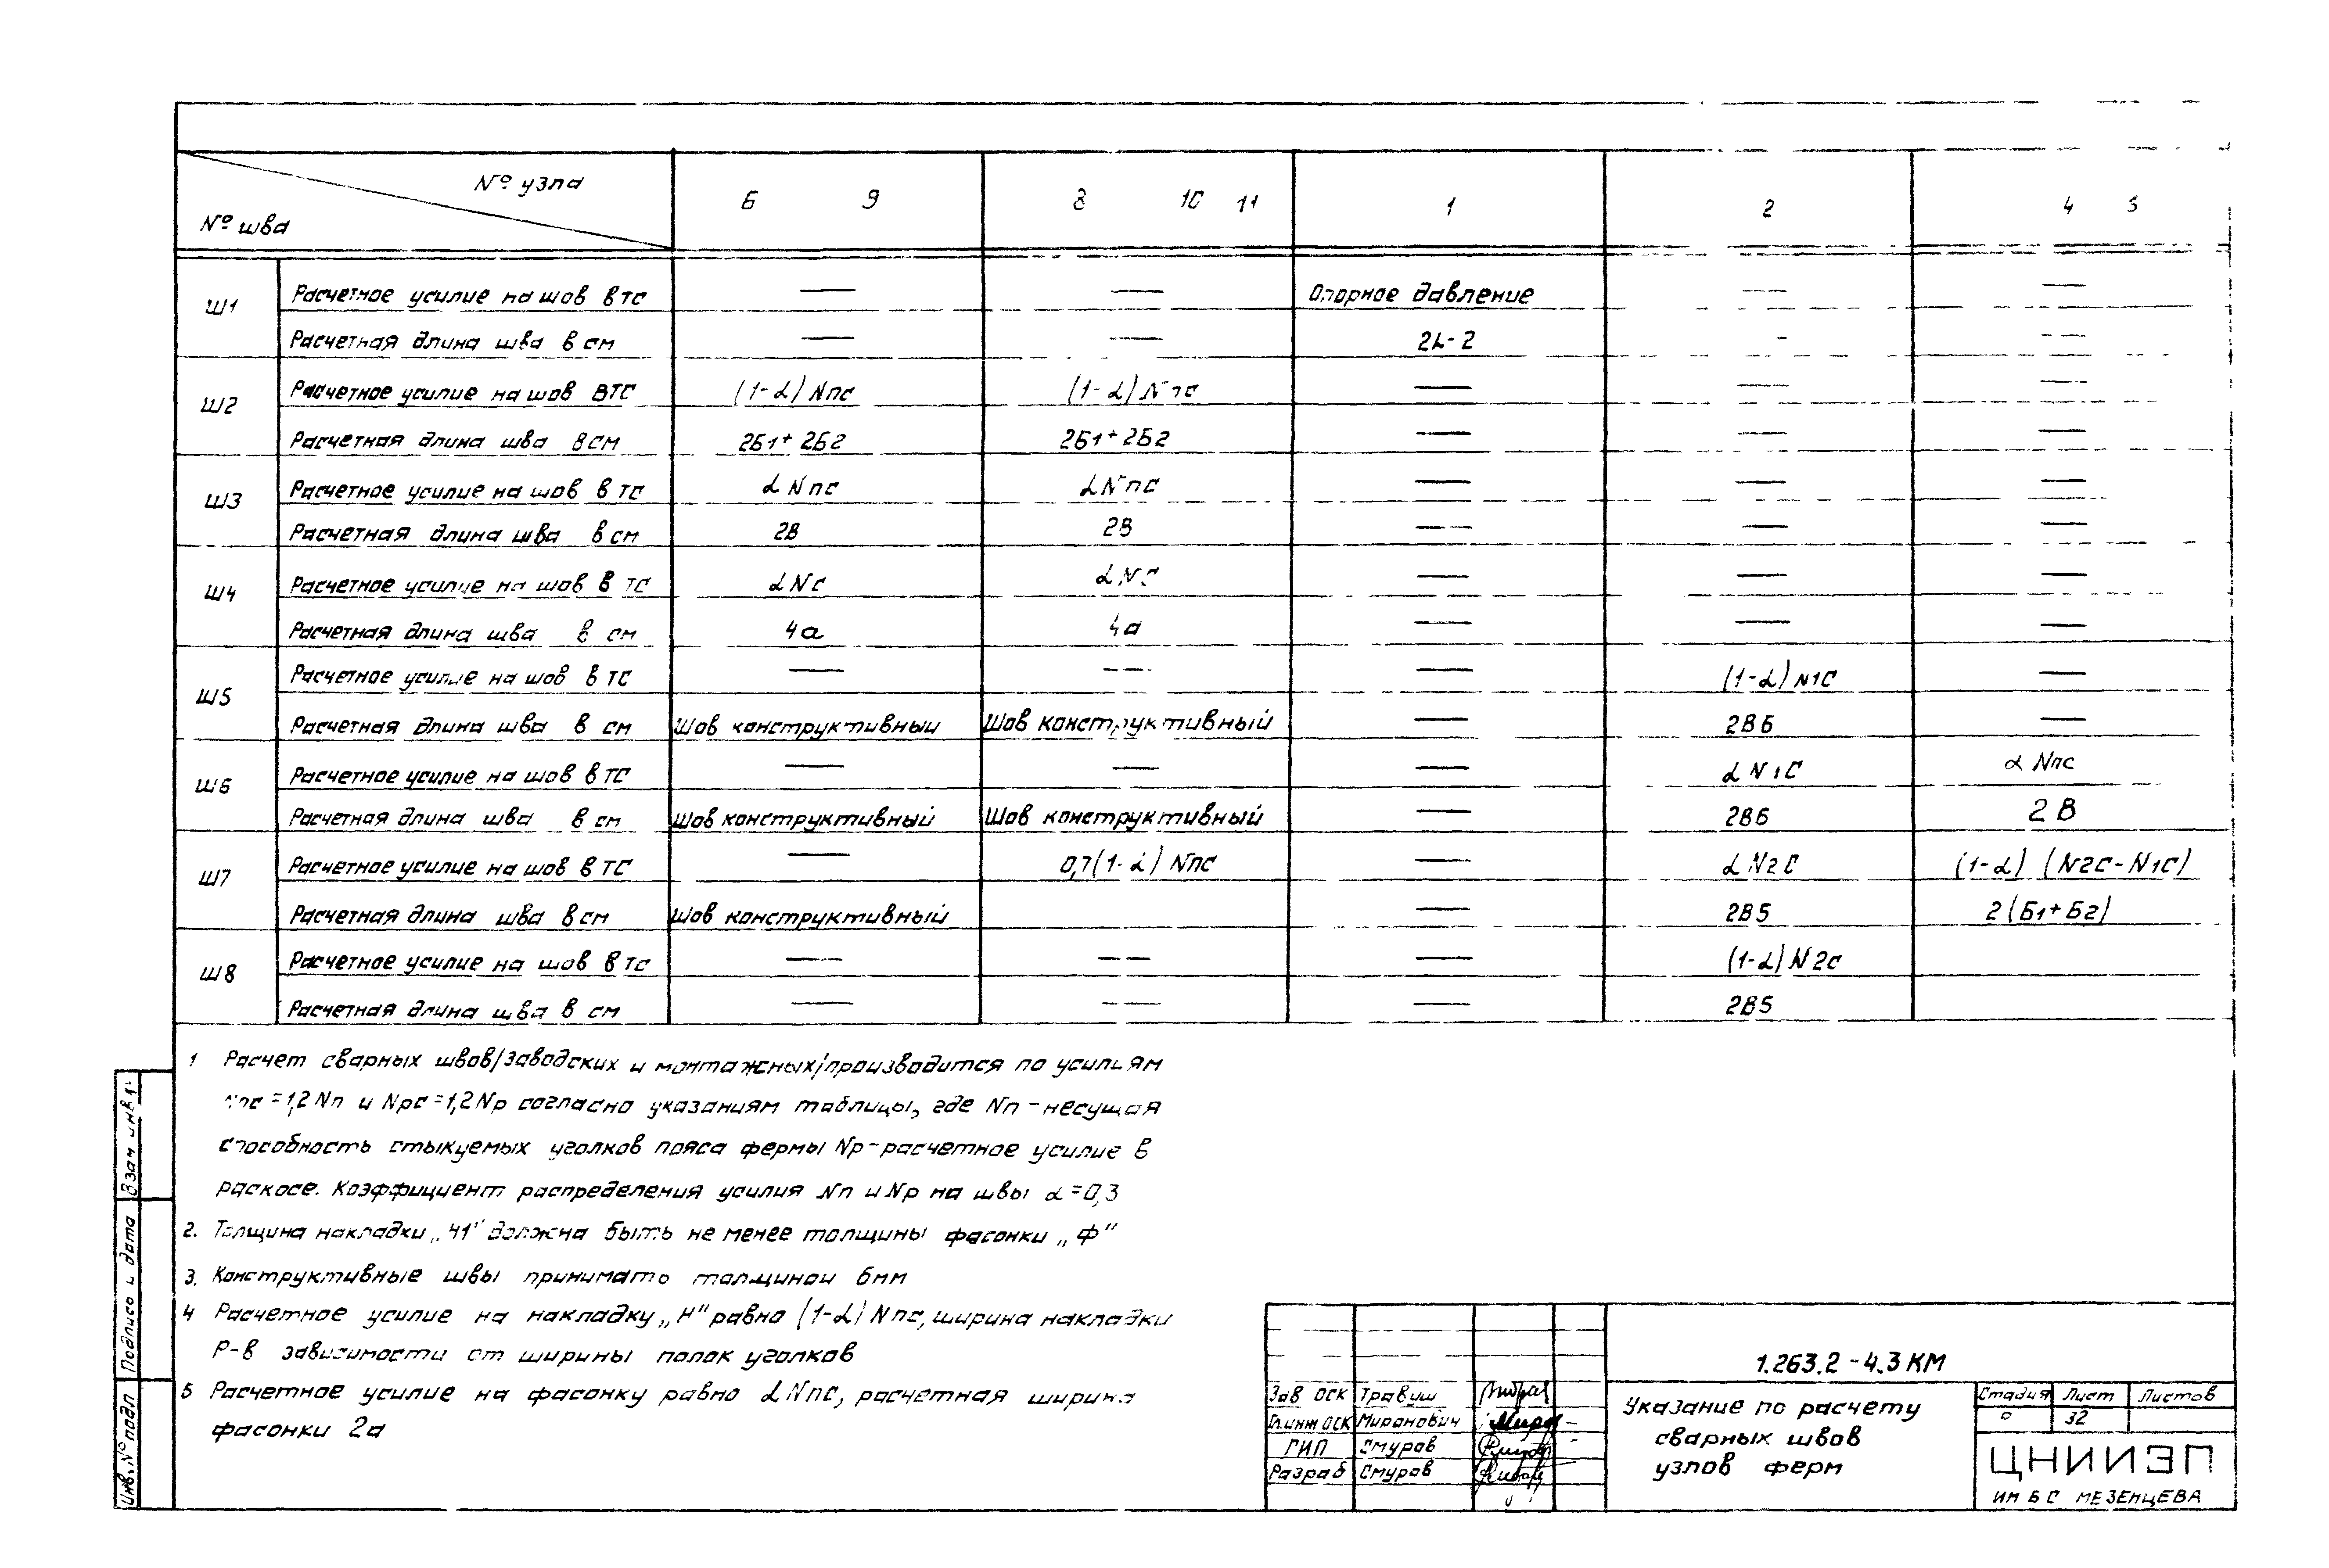 № узла
№ шва
6 9
8 10 11
1
2
4 5
Ш1
Расчетное усилие на шов в тс — — Опорное давление — —
Расчетная длина шва в см — — 2L-2 - —
Ш2
Расчетное усилие на шов в тс (1-α) Nпс (1-α) Nпс — — —
Расчетная длина шва в см 2Б1+2Б2 2Б1+2Б2 — — —
Ш3
Расчетное усилие на шов в тс αNпс αNпс — — —
Расчетная длина шва в см 2В 2В — — —
Ш4
Расчетное усилие на шов в тс αNс αNс — — —
Расчетная длина шва в см 4а 4а — — —
Ш5
Расчетное усилие на шов в тс — — — (1-α) N1С —
Расчетная длина шва в см Шов конструктивный Шов конструктивный — 2В6 —
Ш6
Расчетное усилие на шов в тс — — — αN1С αNпс
Расчетная длина шва в см Шов конструктивный Шов конструктивный — 2В6 2В
Ш7
Расчетное усилие на шов в тс — 0,7(1-α) Nпс — αN2С (1-α) (N2С-N1С)
Расчетная длина шва в см Шов конструктивный — 2В5 2(Б1+Б2)
Ш8
Расчетное усилие на шов в тс — — — (1-α) N2с
Расчетная длина шва в см — — — 2В5
1 Расчет сварных швов/заводских и монтажных/производится по усилиям
Nпс=1,2Nп и Nрс=1,2Nр согласно указаниям таблицы, где Nп-несущая
способность стыкуемых уголков пояса фермы Nр-расчетное усилие в
раскосе. Коэффициент распределения усилия Nп и Nр на швы α=0,3
2. Толщина накладки „Н1" должна быть не менее толщины фасонки „Ф"
3. Конструктивные швы принимать толщиной 6мм
4 Расчетное усилие на накладку „Н" равно (1-α) Nпс, ширина накладки
Р-в зависимости от ширины полок уголков
5 Расчетное усилие на фасонку равно αNпс, расчетная ширина
фасонки 2а
Взам инв
Подпись и дата
Инв. № подл
1.263.2-4.3 КМ
Зав ОСК Травуш
Гл.инж ОСК Миранович
ГИП Смуров
Разраб Смуров
Указание по расчету
сварных швов
узлов ферм
Стадия Лист Листов
Р 32
ЦНИИЭП
ИМ Б С МЕЗЕНЦЕВА